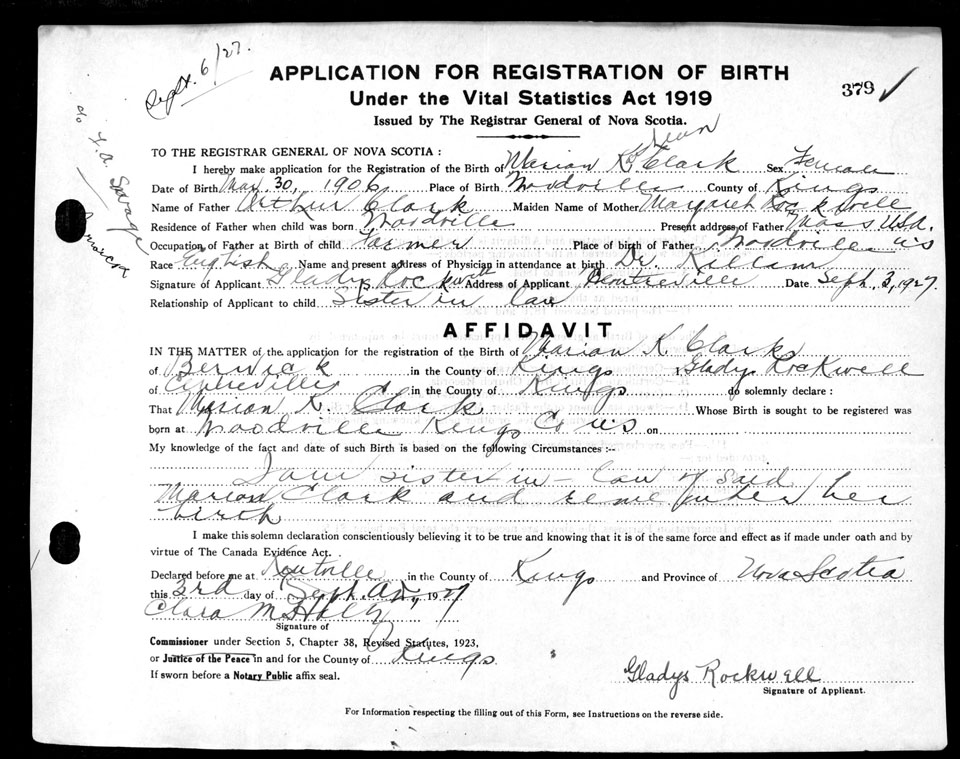 Sept. 6/27.
APPLICATION FOR REGISTRATION OF BIRTH
Under the Vital Statistics Act 1919
379
Issued by The Registrar General of Nova Scotia.
TO THE REGISTRAR GENERAL OF NOVA SCOTIA:
I hereby make application for the Registration of the Birth of Marion K. Clark Sex Female
Date of Birth May 30, 1906 Place of Birth Woodville County of Kings
Name of Father Arthur Clark Maiden Name of Mother Margaret Rockwell
Residence of Father when child was born Woodville Present address of Father Mass USA.
Occupation of Father at Birth of child Farmer Place of birth of Father Woodville NS
Race English Name and present address of Physician in attendance at birth Dr. Killam
Signature of Applicant Gladys Rockwell Address of Applicant Centreville Date Sept. 3, 1927.
Relationship of Applicant to child Sister in law
AFFIDAVIT
IN THE MATTER of the application for the registration of the Birth of Marion K. Clark
of Berwick in the County of Kings Gladys Rockwell
of Centreville in the County of Kings do solemnly declare:
That Marion K. Clark Whose Birth is sought to be registered was
born at Woodville Kings Co NS on
My knowledge of the fact and date of such Birth is based on the following Circumstances:--
I am sister in-law of said
Marion Clark and remember her
birth
I make this solemn declaration conscientiously believing it to be true and knowing that it is of the same force and effect as if made under oath and by
virtue of The Canada Evidence Act.
Declared before me at Kentville in the County of Kings and Province of Nova Scotia
this 3rd day of Sept. A.D., 1927
Clara M
Signature of
Commissioner under Section 5, Chapter 38, Revised Statutes, 1923,
or Justice of the Peace in and for the County of Kings
If sworn before a Notary Public affix seal.
Gladys Rockwell
Signature of Applicant.
For Information respecting the filling out of this Form, see Instructions on the reverse side.
do F. A. Savage
Berwick